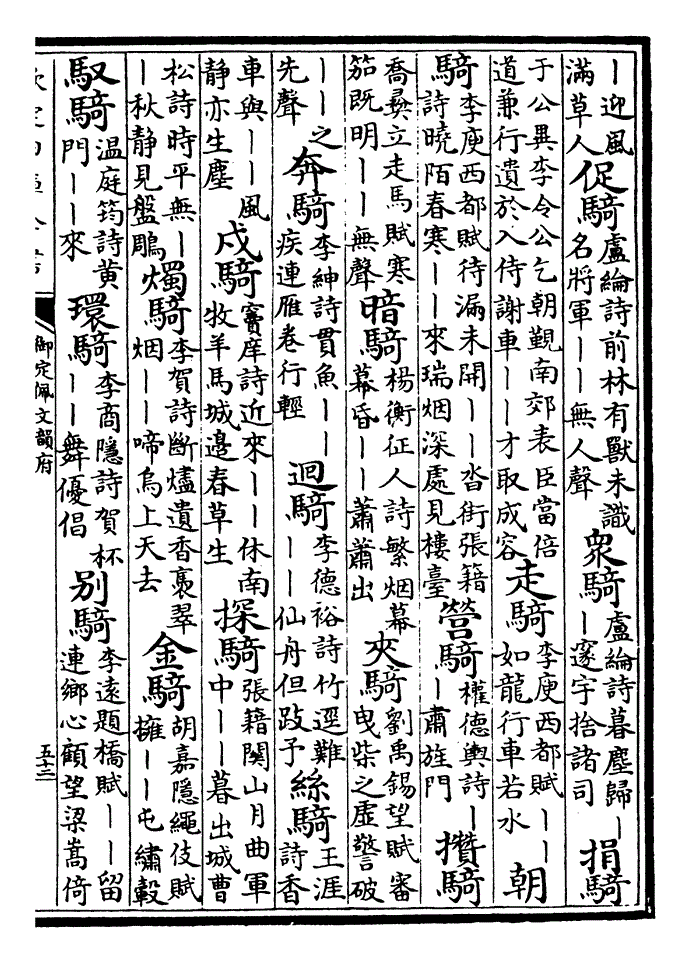 ｜迎風滿草人促騎盧綸詩前林有獸未識名將軍｜｜無人聲衆騎盧綸詩暮塵歸｜｜邃宇捨諸司捐騎
于公異李令公乞朝覲南郊表臣當倍道兼行遺於入侍謝車｜｜才取成容走騎李庾西都賦｜｜如龍行車若水朝
騎李庾西都賦待漏未開｜｜沓街張籍詩曉陌春寒｜｜來瑞烟深處見樓臺營騎權德輿詩｜｜肅旌門攢騎
喬彛立走馬賦寒笳既明｜｜無聲暗騎楊衡征人詩繁烟幕幕昏｜｜蕭蕭出夾騎劉禹錫望賦審曳柴之虛警破
｜｜之先聲奔騎李紳詩貫魚｜｜疾連雁卷行輕迴騎李德裕詩竹逕難｜｜仙舟但跂予絲騎王涯詩香
車與｜｜風静亦生塵戍騎竇庠詩近來｜｜休南牧羊馬城邊春草生探騎張籍関山月曲軍中｜｜暮出城曹
松詩時平無｜｜秋静見盤鵰燭騎李賀詩斷燼遺香裊翠烟｜｜啼烏上天去金騎胡嘉隱繩伎賦擁｜｜屯繡轂
馭騎温庭筠詩黄門｜｜來環騎李商隱詩賀杯｜｜舞優倡别騎李遠題橋賦｜｜留連鄉心顧望梁嵩倚
欽定四庫全書
御定佩文韻府
五十三